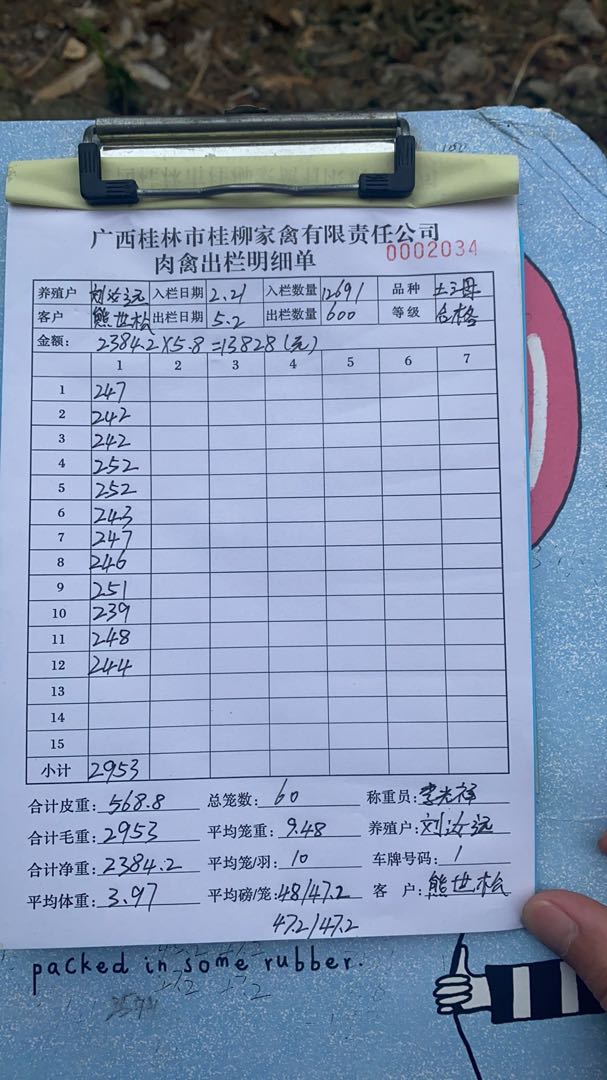 广西桂林市桂柳家禽有限责任公司
肉禽出栏明细单 0002034
养殖户 刘汝远 入栏日期 2.21 入栏数量 12691 品种 土三母
客户 熊世松 出栏日期 5.2 出栏数量 600 等级 合格
金额: 2384.2×5.8=13828(元)
1 2 3 4 5 6 7
1 247
2 242
3 242
4 252
5 252
6 243
7 247
8 246
9 251
10 239
11 248
12 244
13
14
15
小计 2953
合计皮重: 568.8 总笼数: 60 称重员: 李光祥
合计毛重: 2953 平均笼重: 9.48 养殖户: 刘汝远
合计净重: 2384.2 平均笼/羽: 10 车牌号码: 1
平均体重: 3.97 平均磅/笼: 48/47.2 客 户: 熊世松
47.2/47.2
packed in some rubber.